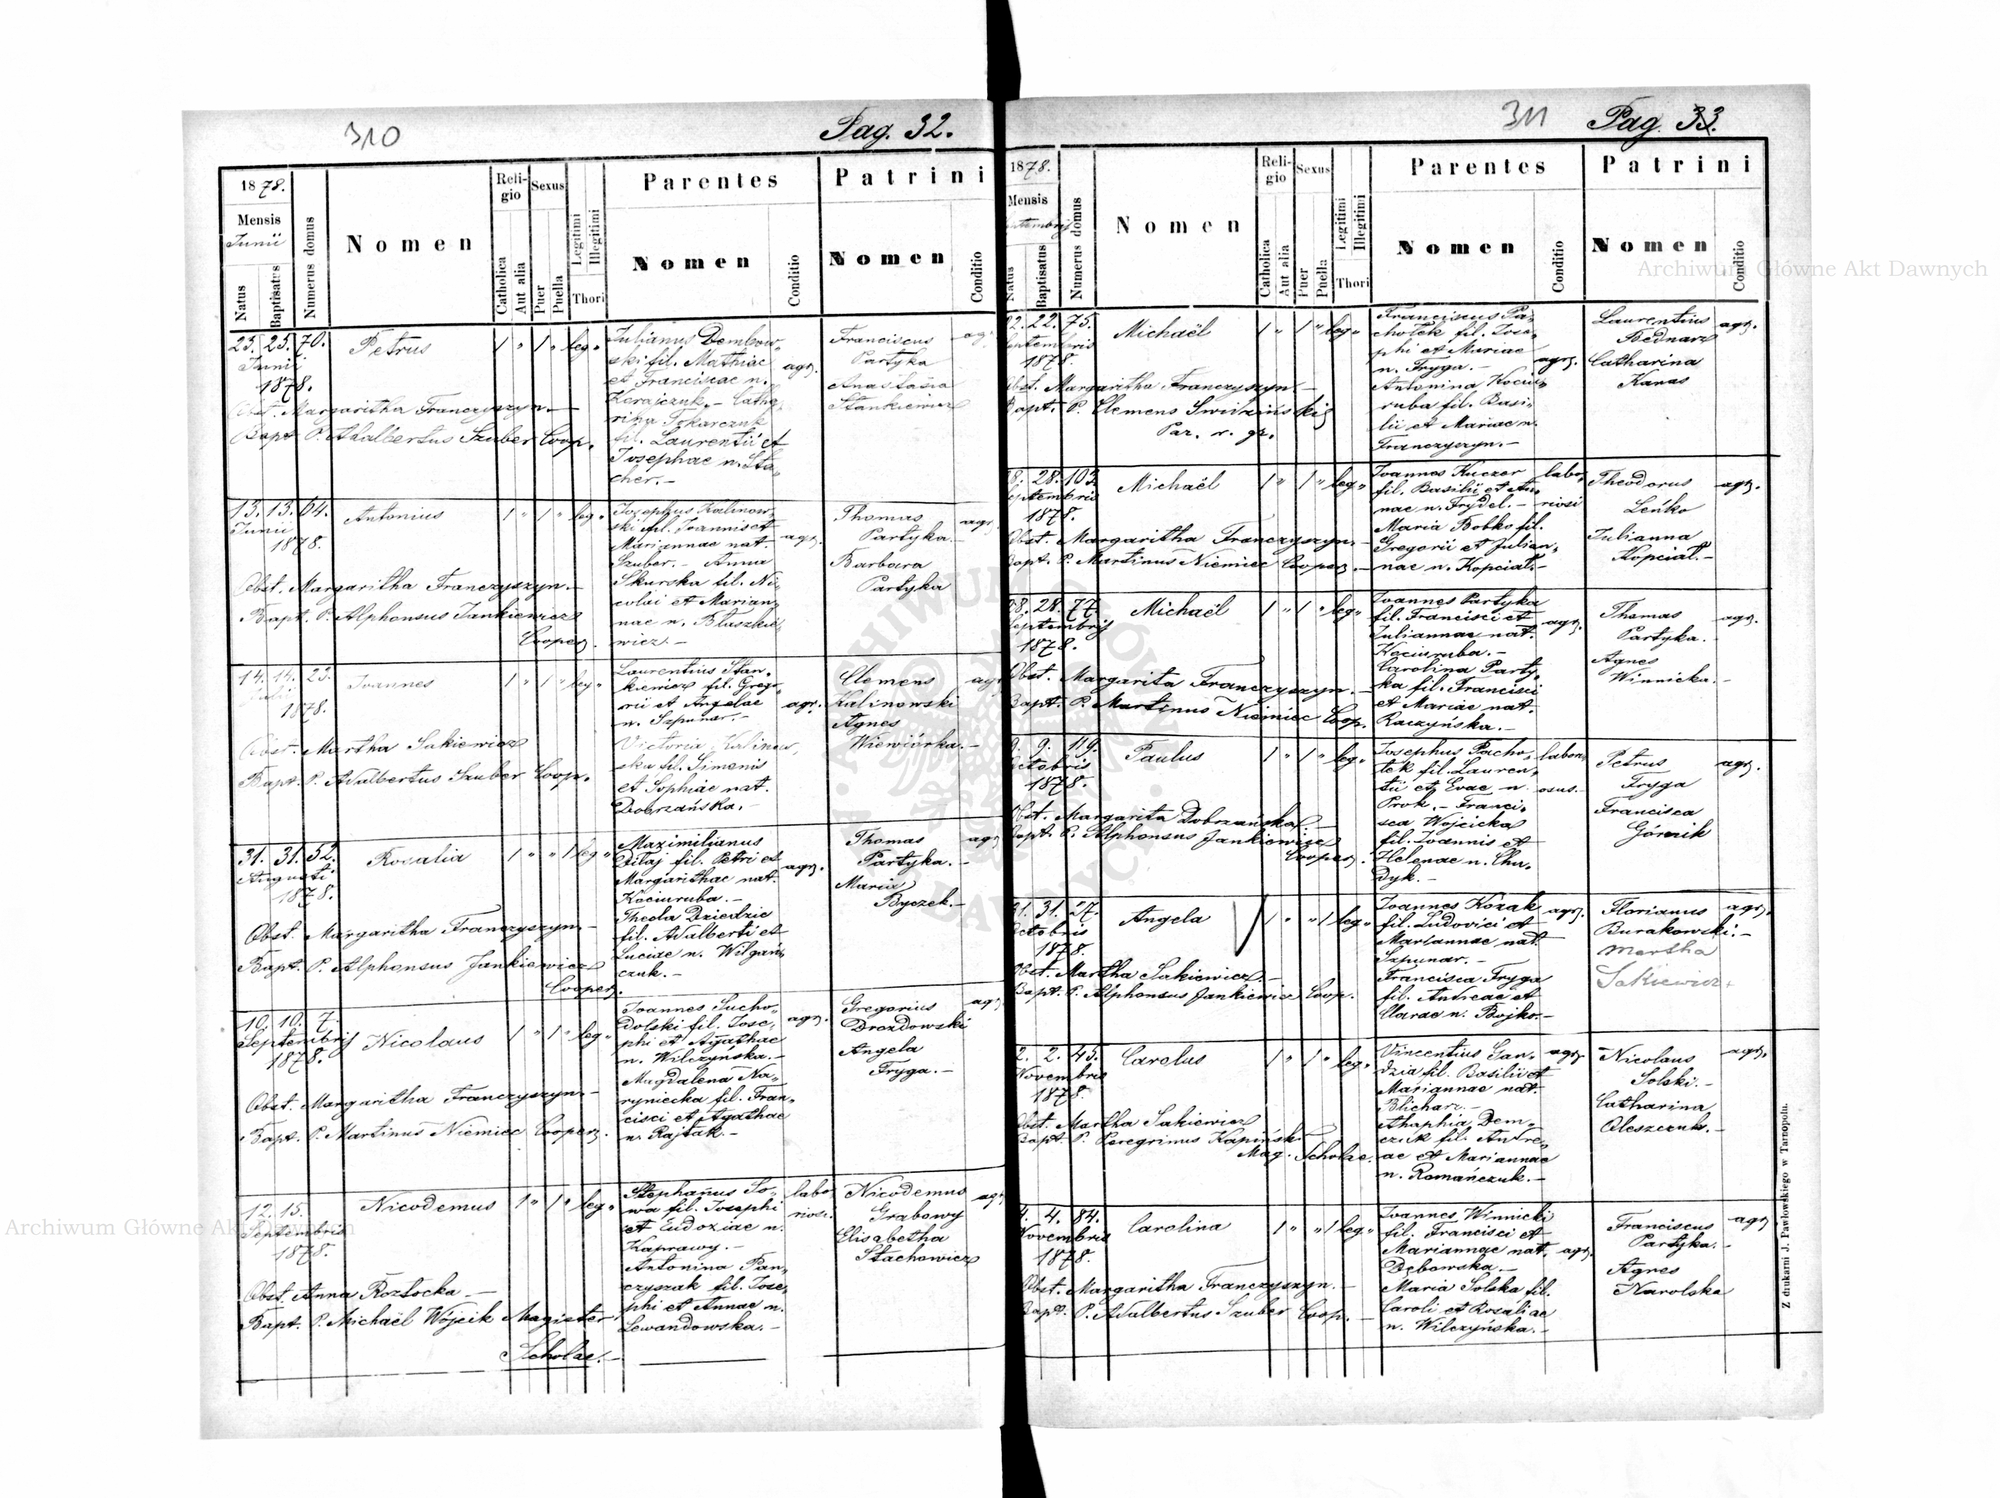 310
Pag. 32.
1878.
Mensis
Junii
Natus
Baptisatus
Numerus domus
Nomen
Religio
Catholica
Aut alia
Sexus
Puer
Puella
Legitimi
Illegitimi
Thori
Parentes
Nomen
Conditio
Patrini
Nomen
Conditio
23. 25. 70.
Junii
1878.
Petrus
1 " 1 " leg "
Julianus Dembow-
ski fil. Mathiae
et Franciscae n.
Karajczuk. – Catha-
rina Tokarczuk
fil. Laurentii et
Josephae n. Sta-
cher. –
agr.
Franciscus
Partyka
Anastasia
Stankiewicz
agr.
Obst. Margaritha Franczyszyn. –
Bapt. P. Adalbertus Szuber Coop.
13. 13. 64.
Junii
1878.
Antonius
1 " 1 " leg "
Josephus Kalinow-
ski fil. Joannis et
Mariannae nat.
Szuber. – Anna
Skurska fil. Ni-
colai et Marian-
nae n. Błaszkie-
wicz. –
agr.
Thomas
Partyka. –
Barbara
Partyka
agr.
Obst. Margaritha Franczyszyn. –
Bapt. P. Alphonsus Jankiewicz
Cooper.
14. 14. 23.
Julii
1878.
Joannes
1 " 1 " leg "
Laurentius Stan-
kiewicz fil. Grego-
rii et Angelae
n. Szpunar. –
Victoria Kalinow-
ska fil. Simeonis
et Sophiae nat.
Dobrzańska. –
agr.
Clemens
Kalinowski
Agnes
Wiewiórka. –
agr.
Obst. Martha Sakiewicz
Bapt. P. Adalbertus Szuber Coop.
31. 31. 52.
Augusti
1878.
Rosalia
1 " " 1 leg "
Maximilianus
Ditaj fil. Petri et
Margarithae nat.
Kociuruba. –
Thecla Dziedzic
fil. Adalberti et
Luciae n. Wilgań-
czuk. –
agr.
Thomas
Partyka. –
Maria
Byczek. –
agr.
Obst. Margaritha Franczyszyn. –
Bapt. P. Alphonsus Jankiewicz
Cooper.
10. 10. 7.
Septembris
1878.
Nicolaus
1 " 1 " leg "
Joannes Sucho-
dolski fil. Jose-
phi et Agathae
n. Wilczyńska. –
Magdalena Na-
ryniecka fil. Fran-
cisci et Agathae
n. Rajtak. –
agr.
Gregorius
Drozdowski
Angela
Fryga. –
agr.
Obst. Margaritha Franczyszyn. –
Bapt. P. Martinus Niemiec Cooper.
12. 15.
Septembris
1878.
Nicodemus
1 " 1 " leg "
Stephanus So-
wa fil. Josephi
et Eudoxiae n.
Kaprawy. –
Antonina Pan-
czyszak fil. Jose-
phi et Annae n.
Lewandowska. –
labo-
riosi.
Nicodemus
Grabowy
Elisabetha
Stachowicz
agr.
Obst. Anna Roztocka. –
Bapt. P. Michaël Wójcik Magister
Scholae. –
311
Pag. 33.
1878.
Mensis
Septembris
Natus
Baptisatus
Numerus domus
Nomen
Religio
Catholica
Aut alia
Sexus
Puer
Puella
Legitimi
Illegitimi
Thori
Parentes
Nomen
Conditio
Patrini
Nomen
Conditio
22. 22. 75.
Septembris
1878.
Michaël
1 " 1 " leg "
Franciscus Pa-
chołek fil. Jose-
phi et Mariae
n. Fryga. –
Antonina Kociu-
ruba fil. Basi-
lii et Mariae n.
Franczyszyn. –
agr.
Laurentius
Bednarz
Catharina
Kanas
agr.
Obst. Margaritha Franczyszyn. –
Bapt. P. Clemens Swidziński
Par. r. gr.
28. 28. 103.
Septembris
1878.
Michaël
1 " 1 " leg "
Joannes Kuczer
fil. Basilii et An-
nae n. Frydel. –
Maria Bobko fil.
Gregorii et Julian-
nae n. Kopciał. –
labo-
riosi
Theodorus
Leńko
Julianna
Kopciał. –
agr.
Obst. Margaritha Franczyszyn. –
Bapt. P. Martinus Niemiec Cooper. –
28. 28. 77.
Septembris
1878.
Michaël
1 " 1 " leg "
Joannes Partyka
fil. Francisci et
Juliannae nat.
Kociuruba. –
Carolina Party-
ka fil. Francisci
et Mariae nat.
Raczyńska. –
agr.
Thomas
Partyka. –
Agnes
Winnicka. –
agr.
Obst. Margarita Franczyszyn. –
Bapt. P. Martinus Niemiec Coop.
9. 9. 119.
Octobris
1878.
Paulus
1 " 1 " leg "
Josephus Pacho-
łek fil. Lauren-
tii et Evae n.
Prok. – Franci-
sca Wojcicka
fil. Joannis et
Helenae n. Chu-
dyk. –
labori-
osus. –
Petrus
Fryga
Francisca
Górnik
agr.
Obst. Margarita Dobrzańska. –
Bapt. P. Alphonsus Jankiewicz
Cooper.
31. 31. 27.
Octobris
1878.
Angela
1 " " 1 leg "
Joannes Kozak
fil. Ludovici et
Mariannae nat.
Szpunar. –
Francisca Fryga
fil. Antreae et
Clarae n. Bojko. –
agr.
Florianus
Burakowski. –
Martha
Sakiewicz.
agr.
Obst. Martha Sakiewicz. –
Bapt. P. Alphonsus Jankiewicz Coop.
2. 2. 45.
Novembris
1878.
Carolus
1 " 1 " leg "
Vincentius Gan-
dzia fil. Basilii et
Mariannae nat.
Blicharz. –
Ahaphia Dem-
czuk fil. Antre-
ae et Mariannae
n. Romańczuk. –
agr.
Nicolaus
Solski. –
Catharina
Oleszczuk. –
agr.
Obst. Martha Sakiewicz
Bapt. P. Peregrinus Kapiński
Mag. Scholae.
4. 4. 84.
Novembris
1878.
Carolina
1 " " 1 leg "
Joannes Winnicki
fil. Francisci et
Mariannae nat.
Dębowska. –
Maria Solska fil.
Caroli et Rozaliae
n. Wilczyńska. –
agr.
Franciscus
Partyka. –
Agnes
Narolska
agr.
Obst. Margaritha Franczyszyn. –
Bapt. P. Adalbertus Szuber Coop. –
Z drukarni J. Pawłowskiego w Tarnopolu.
Archiwum Główne Akt Dawnych
Archiwum Główne Akt Dawnych